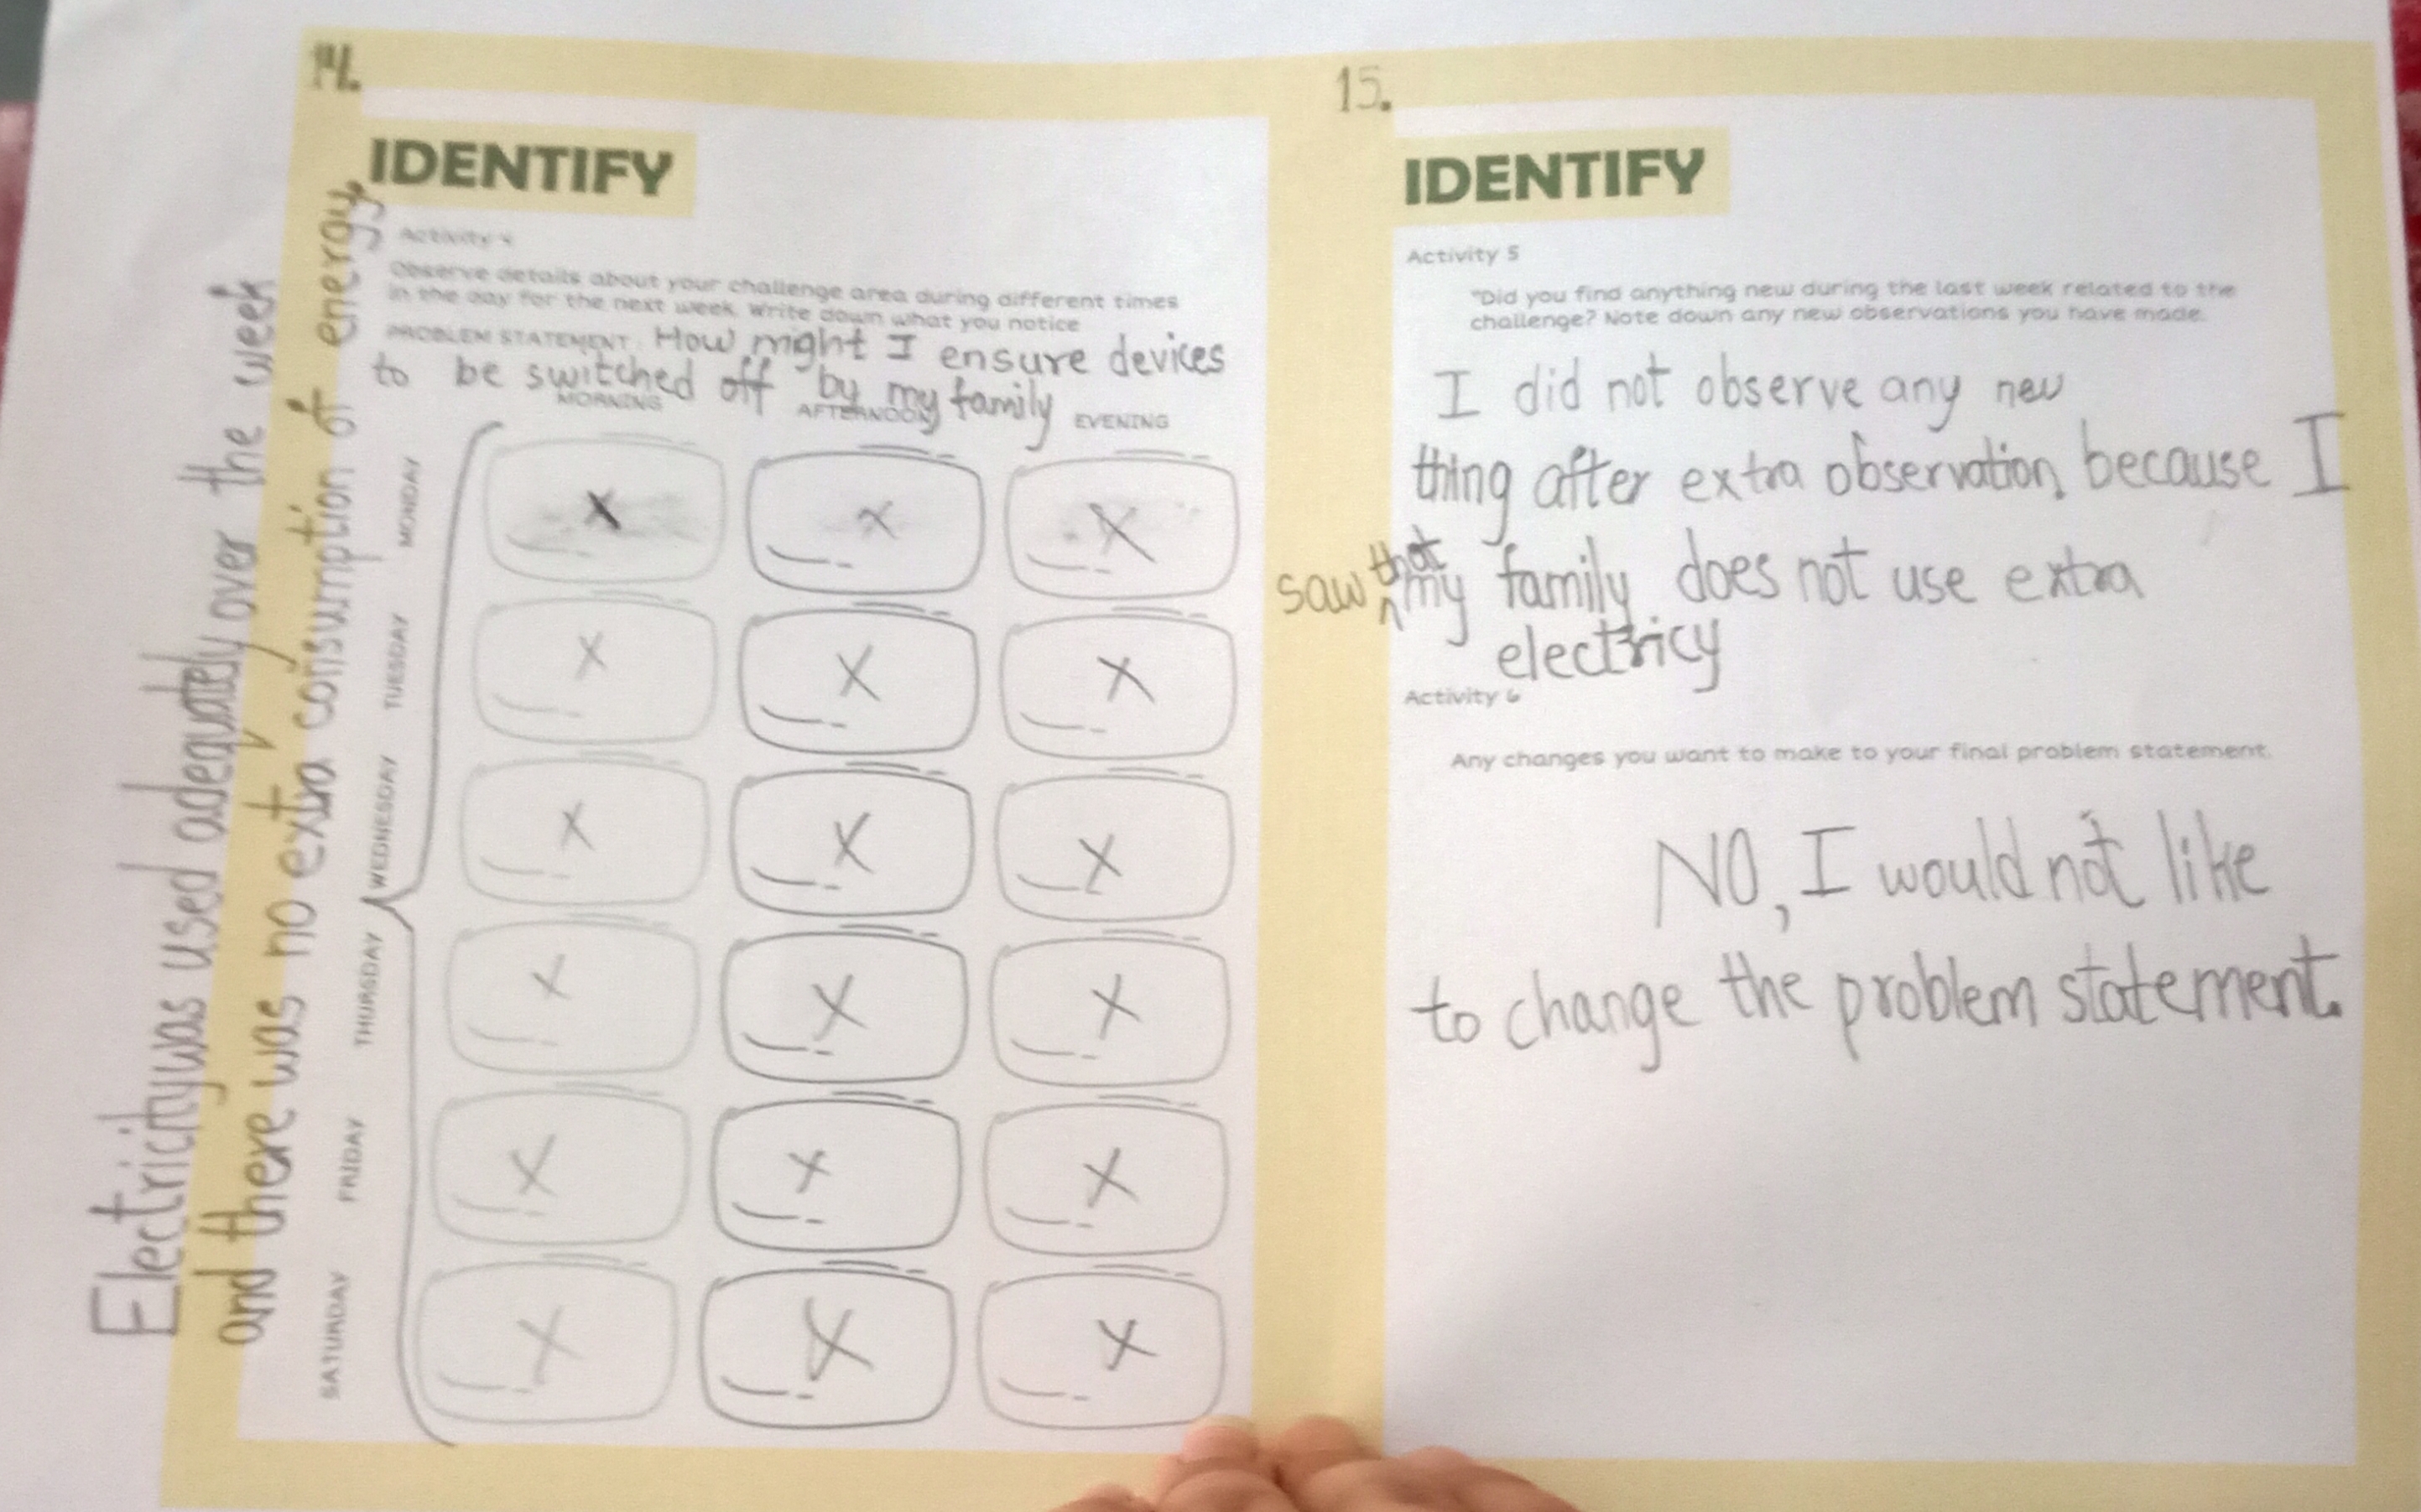 14.
IDENTIFY
Activity 4
Observe details about your challenge area during different times
in the day for the next week. Write down what you notice
PROBLEM STATEMENT: How might I ensure devices
to be switched off by my family
MORNING AFTERNOON EVENING
MONDAY X X X
TUESDAY X X X
WEDNESDAY X X X
THURSDAY X X X
FRIDAY X X X
SATURDAY X X X
Electricity was used adequately over the week
and there was no extra consumption of energy.
15.
IDENTIFY
Activity 5
"Did you find anything new during the last week related to the
challenge? Note down any new observations you have made.
I did not observe any new
thing after extra observation, because I
saw that my family does not use extra
electricy
Activity 6
Any changes you want to make to your final problem statement.
NO, I would not like
to change the problem statement.